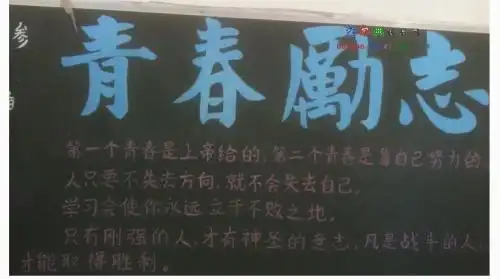 青春勵志
第一个青春是上帝给的,第二个青春是靠自己努力的
人只要不失去方向,就不会失去自己。
学习会使你永远立于不败之地。
只有刚强的人,才有神圣的意志,凡是战斗的人,
才能取得胜利。
参